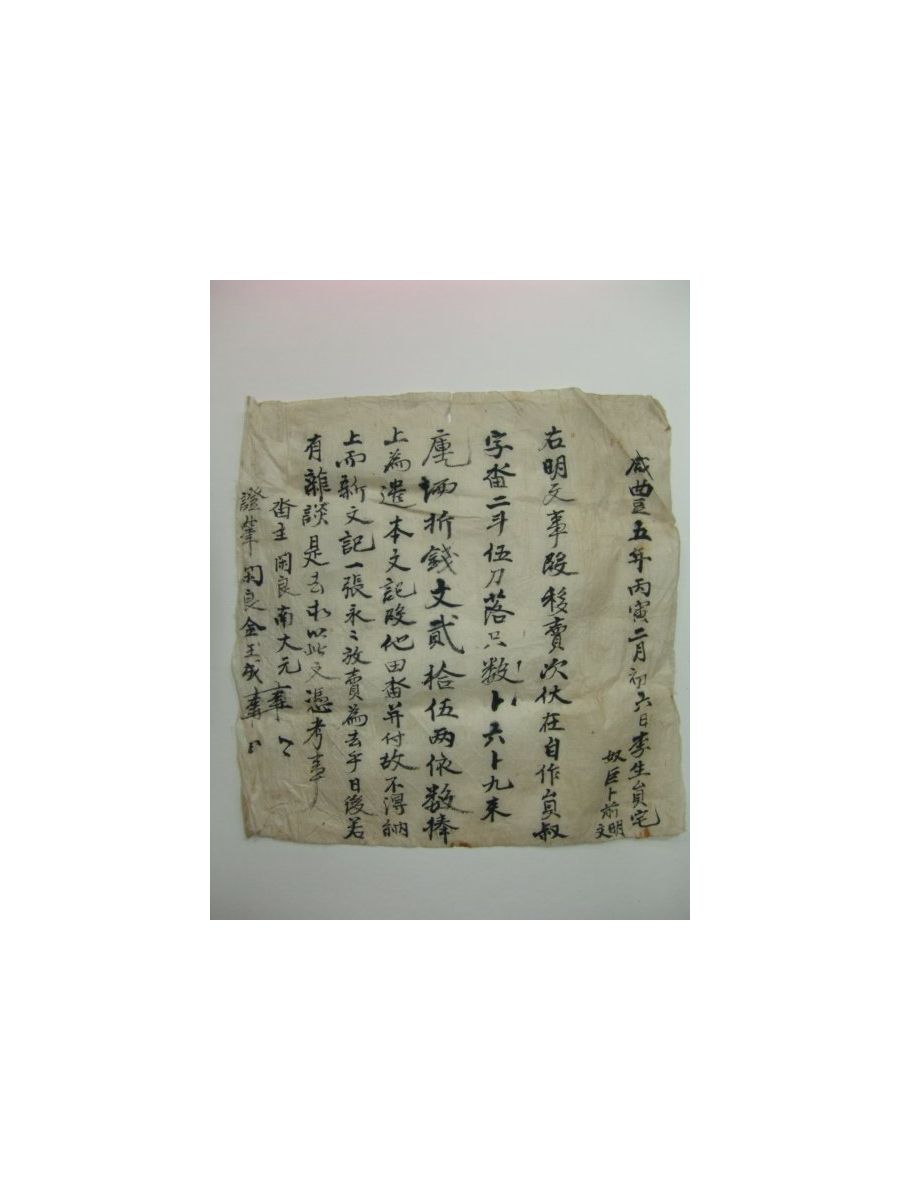 咸豊五年丙寅二月初六日李生員宅
奴巨卜前明
文
右明文事段移賣次伏在自作員叔
字畓二斗伍刀落只数卜六卜九束
庫折錢文貳拾伍兩依數捧
上為遣本文記段他田畓并付故不淂納
上而新文記一張永〻放賣為去乎日後若
有雜談是去木以此文憑考事
畓主閑良南大元
證筆閑良金玉成